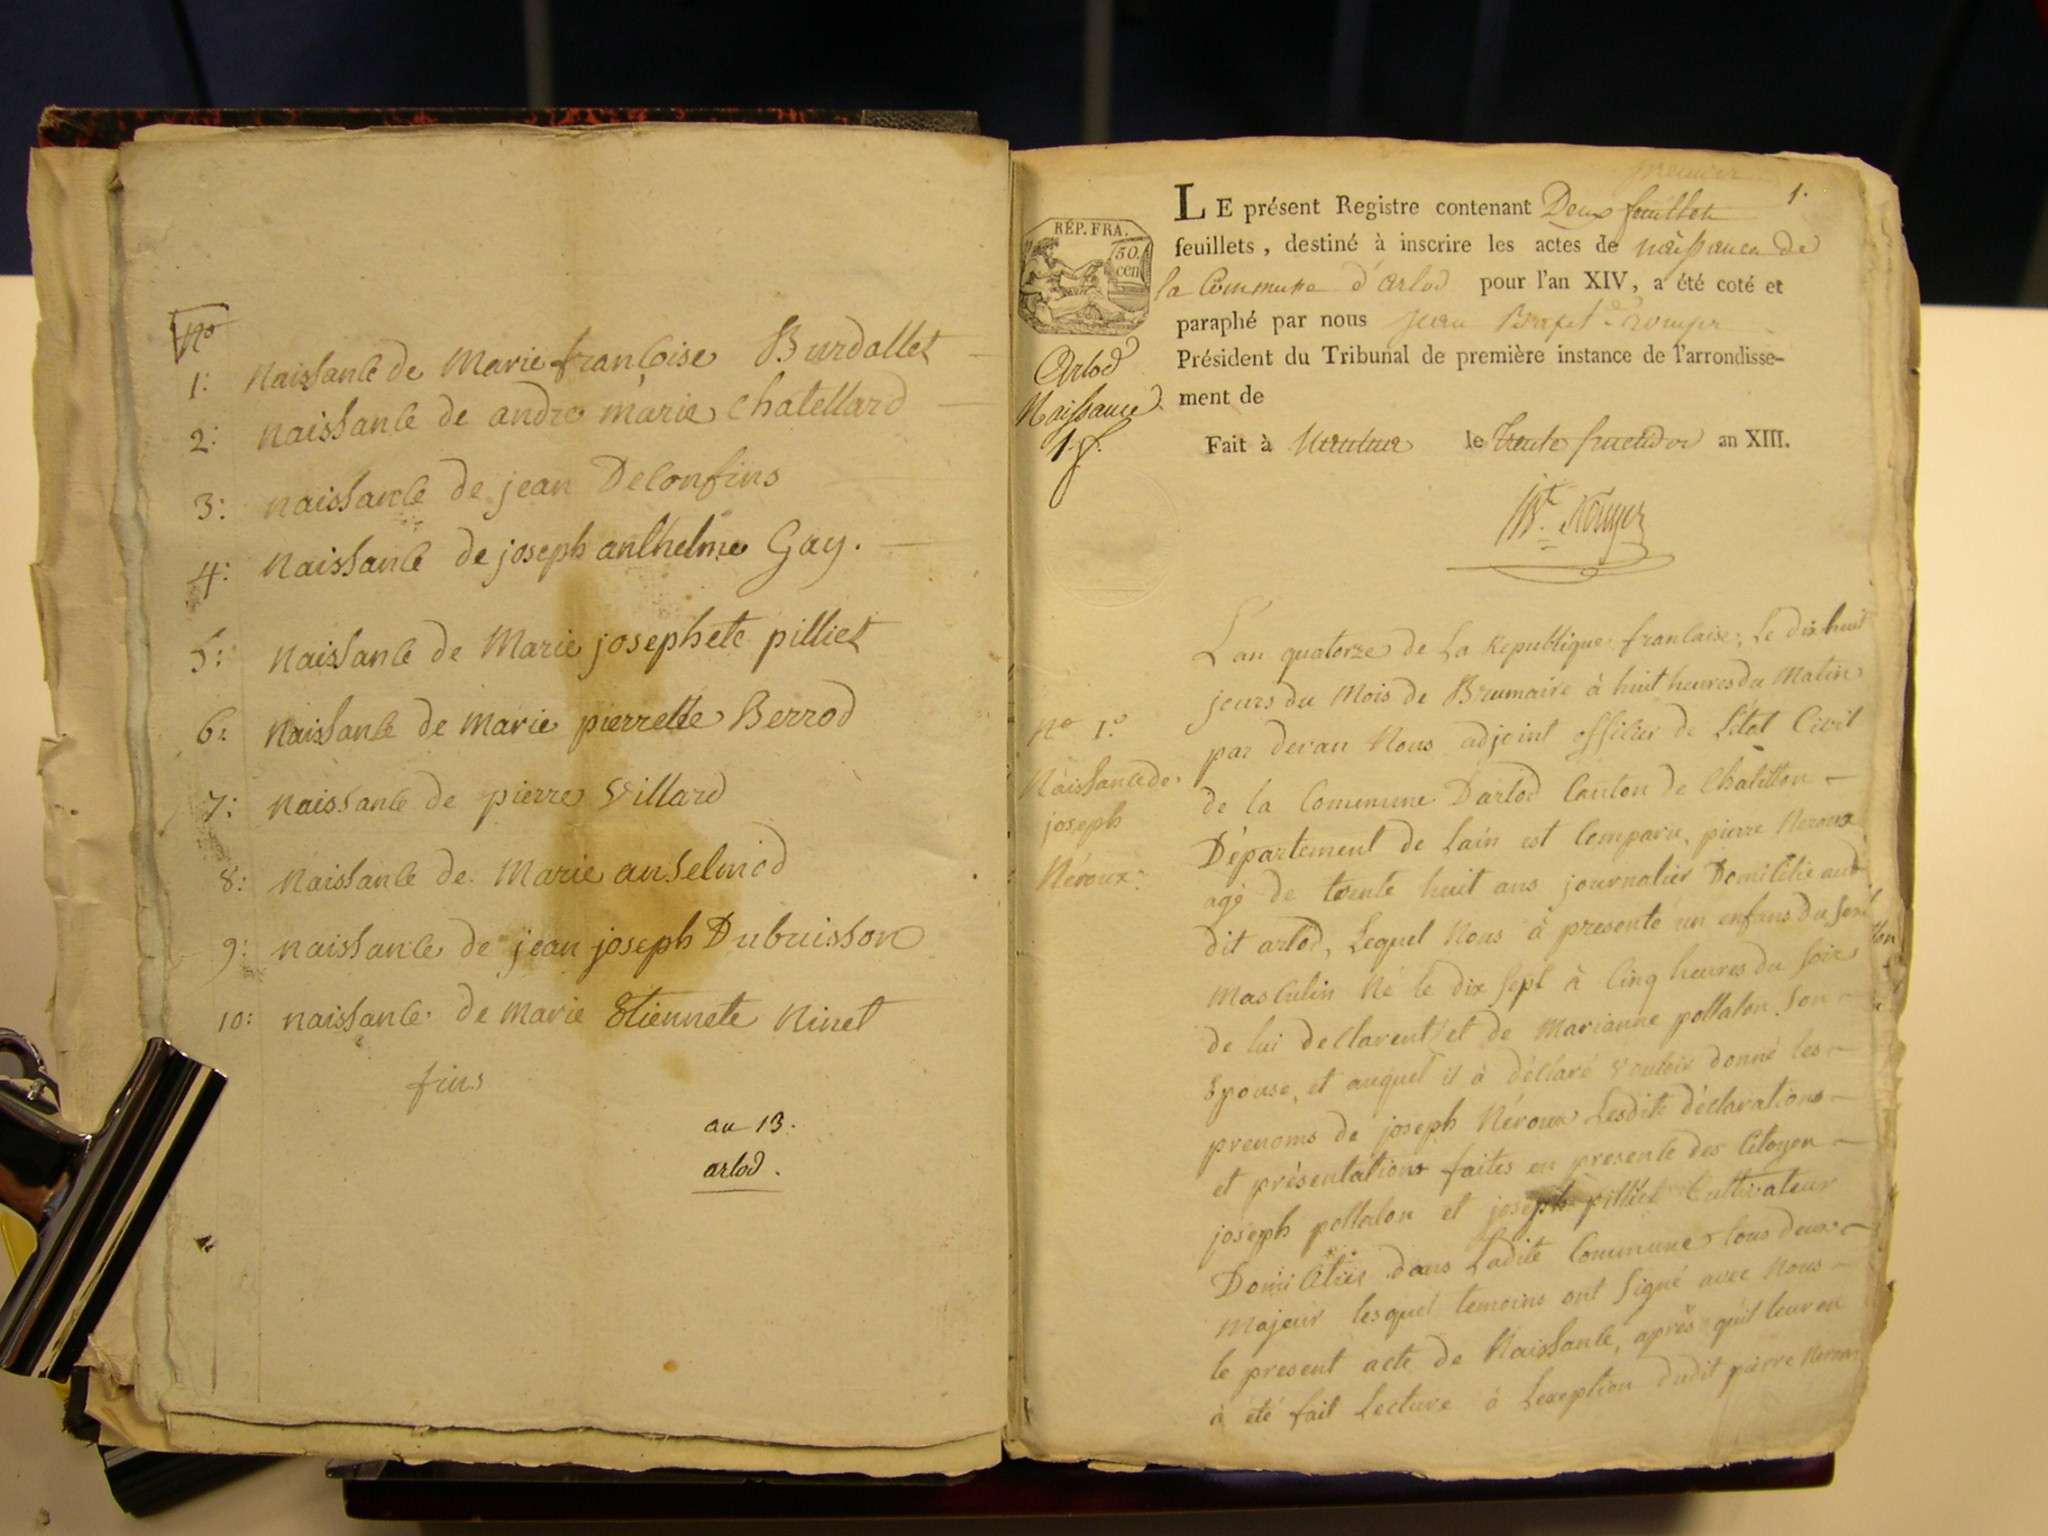 No
1: naissance de Marie francoise Burdallet
2: naissance de andre marie chatellard
3: naissance de jean Delonfins
4: naissance de joseph anthelme Gay.
5: naissance de Marie josephete pilliet
6: naissance de marie pierrette Berrod
7: naissance de pierre Villard
8: naissance de Marie anselmod
9: naissance de jean joseph Dubuisson
10: naissance de marie Etiennete Ninet
fins
an 13.
arlod.
premier
1.
LE présent Registre contenant Deux feuillets
feuillets, destiné à inscrire les actes de naissance de
la Commune d'arlod pour l'an XIV, a été coté et
paraphé par nous jean Bapt. Rouyer
Président du Tribunal de première instance de l'arrondisse-
ment de
Fait à Nantua le trente fructidor an XIII.
RÉP. FRA.
50.
cen
Arlod
Naissance
1. f.
Bt. Rouyer
L'an quatorze de La Republique francaise, Le dix huit
jours du Mois de Brumaire à huit heures du Matin
par devan Nous adjoint officier de L'état Civil
de la Commune Darlod Canton de Chatillon
Département de Lain est Comparu, pierre Neroux
agé de trente huit ans journalier Domicilié aud
dit arlod, Lequel Nous à presenté un enfans du sexe
Masculin Né le dix sept à Cinq heures du soir
de lui declarent et de Marianne pollalon son
Epouse, et auquel il à déclaré vouloir donné les
prenoms de joseph Néroux Lesdite déclarations
et présentations faites en presence des Citoyen
joseph pollalon et joseph pilliet Cultivateur
Domicilies dans Ladite Commune tous deux
Majeur lesquel temoins ont signé avec Nous
le present acte de Naissance, après qu'il leur en
à été fait Lecture à Lexeption dudit pierre Neroux
No 1.o
Naissance de
joseph
Néroux: